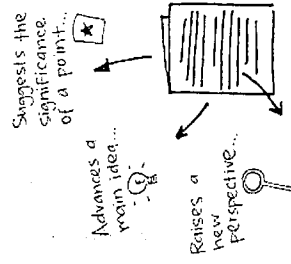 Suggests the
significance
of a point...
Advances a
main idea...
Raises a
new
perspective...